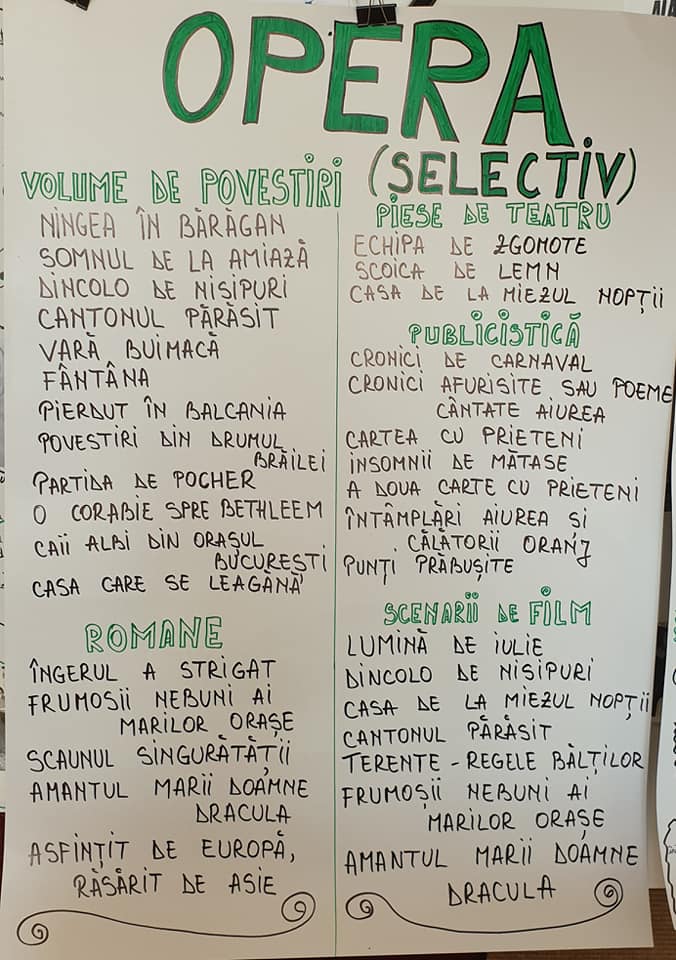 OPERA
(SELECTIV)
VOLUME DE POVESTIRI
NINGEA ÎN BĂRĂGAN
SOMNUL DE LA AMIAZĂ
DINCOLO DE NISIPURI
CANTONUL PĂRĂSIT
VARĂ BUIMACĂ
FÂNTÂNA
PIERDUT ÎN BALCANIA
POVESTIRI DIN DRUMUL
BRĂILEI
PARTIDA DE POCHER
O CORABIE SPRE BETHLEEM
CAII ALBI DIN ORAȘUL
BUCUREȘTI
CASA CARE SE LEAGĂNĂ
ROMANE
ÎNGERUL A STRIGAT
FRUMOSII NEBUNI AI
MARILOR ORAȘE
SCAUNUL SINGURĂTĂȚII
AMANTUL MARII DOAMNE
DRACULA
ASFINȚIT DE EUROPĂ,
RĂSĂRIT DE ASIE
PIESE DE TEATRU
ECHIPA DE ZGOMOTE
SCOICA DE LEMN
CASA DE LA MIEZUL NOPȚII
PUBLICISTICĂ
CRONICI DE CARNAVAL
CRONICI AFURISITE SAU POEME
CÂNTATE AIUREA
CARTEA CU PRIETENI
INSOMNII DE MĂTASE
A DOUA CARTE CU PRIETENI
ÎNTÂMPLĂRI AIUREA SI
CĂLĂTORII ORANJ
PUNȚI PRĂBUȘITE
SCENARII DE FILM
LUMINĂ DE IULIE
DINCOLO DE NISIPURI
CASA DE LA MIEZUL NOPȚII
CANTONUL PĂRĂSIT
TERENTE - REGELE BĂLȚILOR
FRUMOȘII NEBUNI AI
MARILOR ORAȘE
AMANTUL MARII DOAMNE
DRACULA